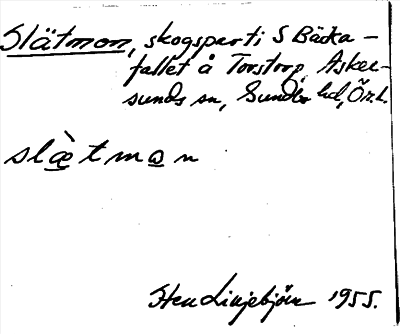 Slätmon, skogsparti S Bäcka-
fallet å Torstorp, Asker-
sunds sn, Sundbo hd, Ör. l.
slæ̀tmon
Sten Liljebjörn 1955.